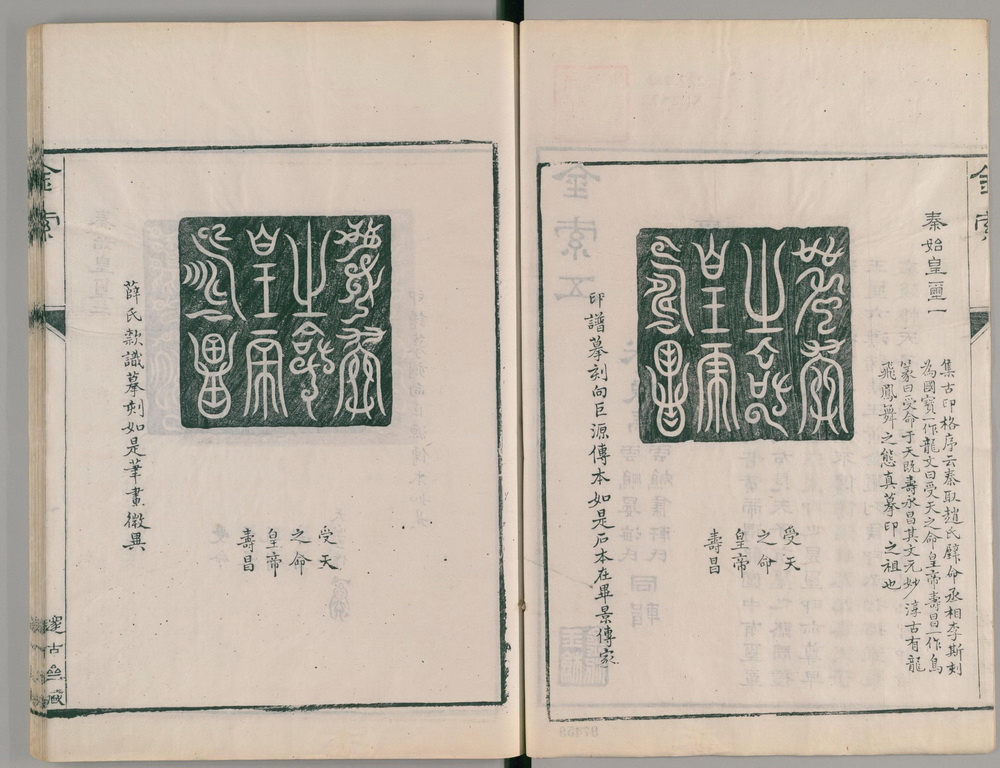 金索
秦始皇璽一
集古印格序云秦取趙氏璧命丞相李斯刻
為國寶一作龍文曰受天之命皇帝壽昌一作鳥
篆曰受命于天既壽永昌其文元妙淳古有龍
飛鳳舞之態真摹印之祖也
受天
之命
皇帝
壽昌
印譜摹刻向巨源傳本如是石本在畢景傳家
受天
之命
皇帝
壽昌
薛氏款識摹刻如是筆畫微異
金索
邃古齋藏